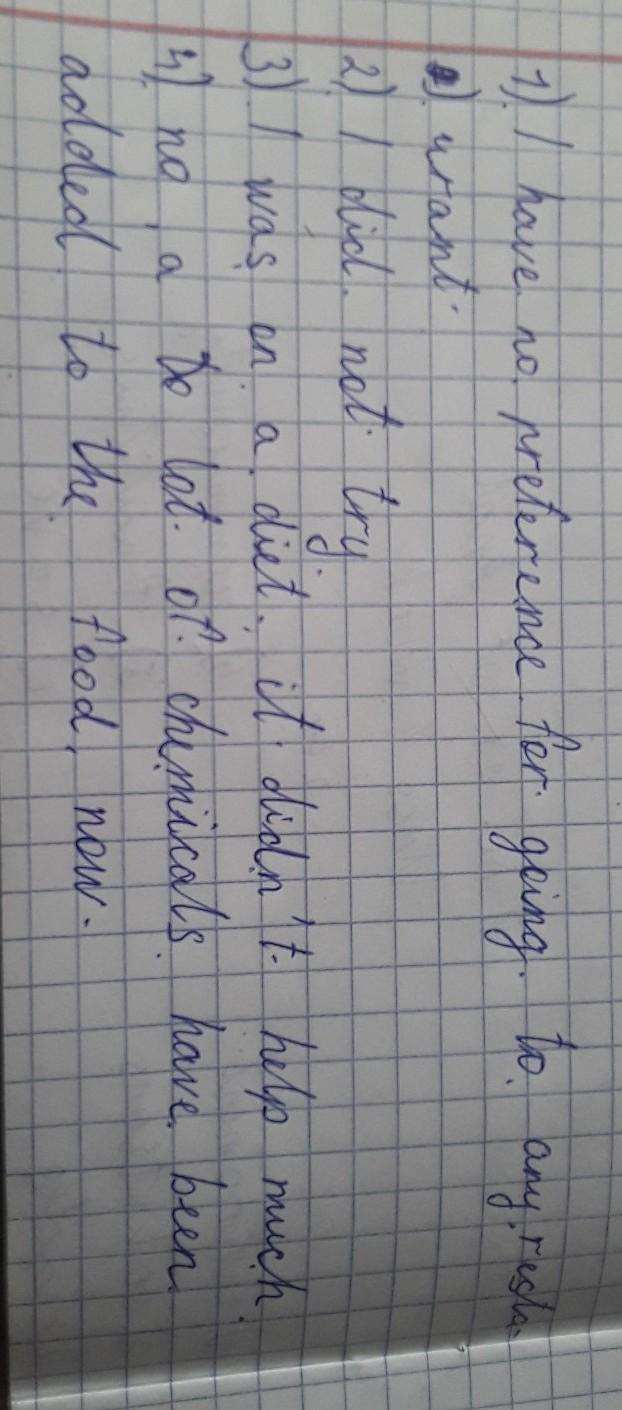 1) I have no preference for going to any resta-
2) urant.
2) I did not try
3) I was on a diet, it didn't help much.
4) no, a to lot of chemicals have been
added to the food, now.